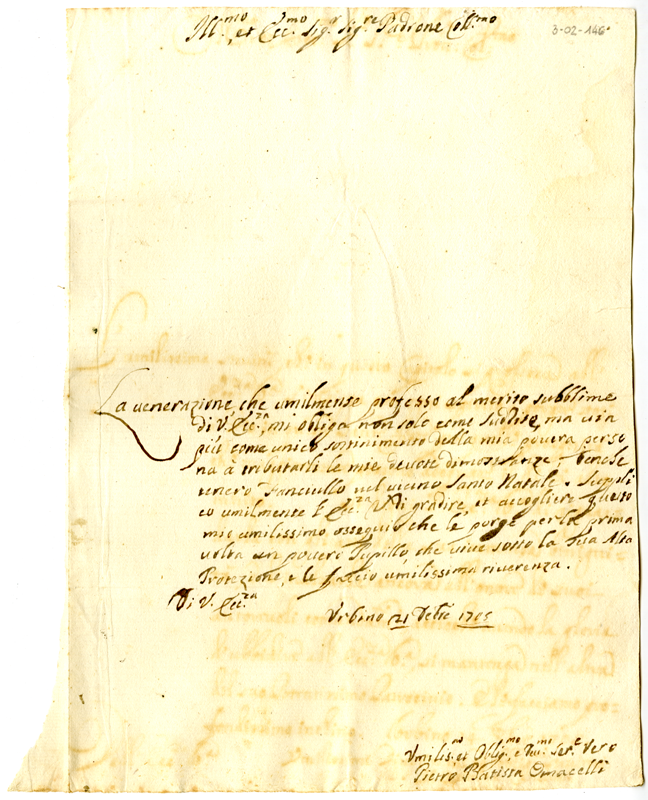 Ill.mo et Ecc.mo Sig.r Sig.re Padrone Coll.mo
3-02-146
La venerazione, che umilmente professo al merito subblime
di V. Ecc.a, mi obliga non solo come Suddito, ma via
più come unico sostinimento della mia povera perso
na à tributarli le mie devote dimostranze, benche
tenero Fanciullo nel vicino Santo Natale. Suppli
co umilmente l'Ecc.za V. di gradire, et accogliere questo
mio umilissimo ossequio che le porge per la prima
volta un povero Pupillo, che vive sotto la Sua Alta
Protezione, e le faccio umilissima riverenza.
Di V. Ecc.za
Urbino 21 Xbre 1705
Umiliss.mo et Oblig.mo, e Ser.e vero
Pietro Batista